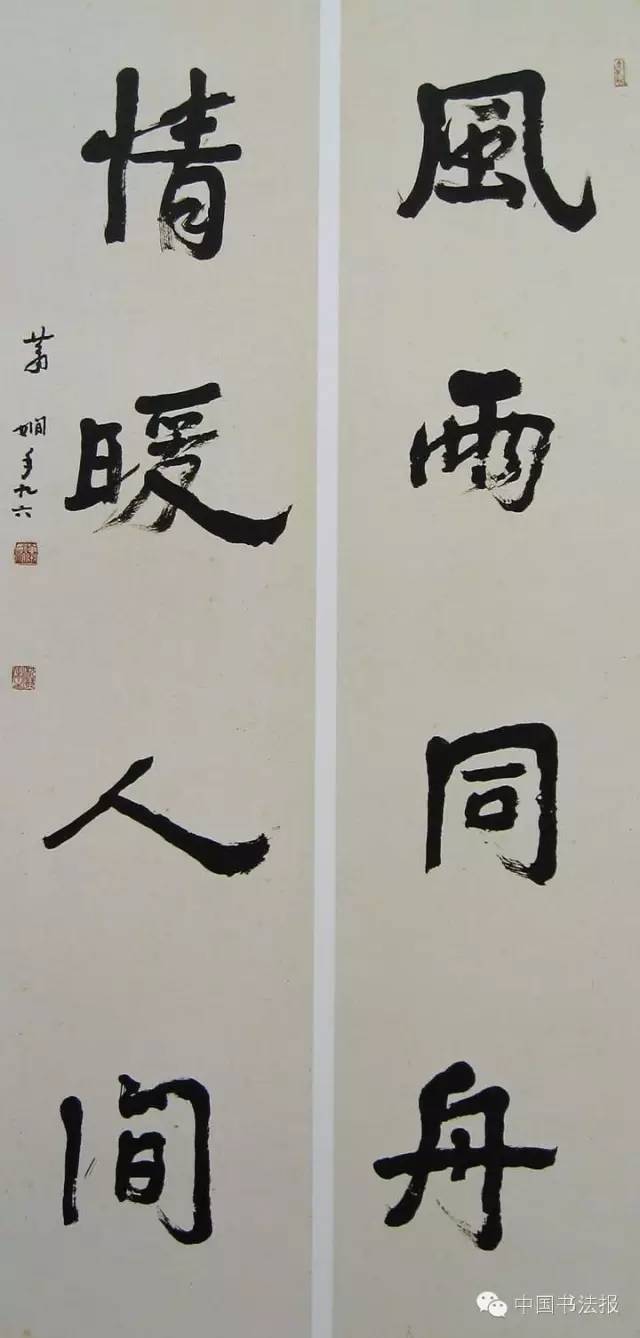 風雨同舟
情暖人间
萧娴年九六
中国书法报